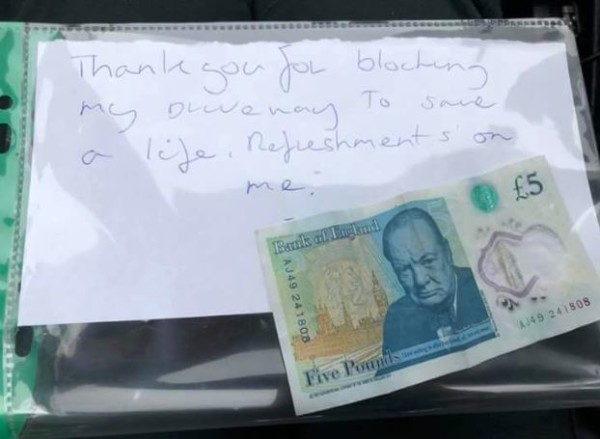 Thank you for blocking
my Driveway To save
a life. Refreshments on
me.
Bank of England
£5
AJ49 241808
AJ49 241808
Five Pounds